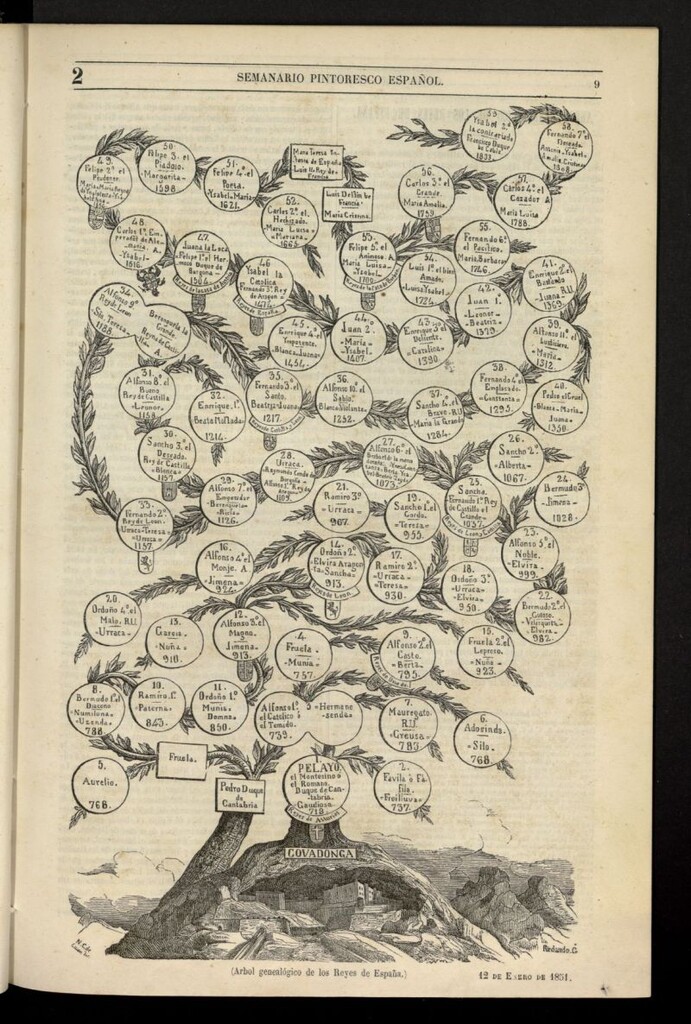 2
SEMANARIO PINTORESCO ESPAÑOL.
9
59
Ysabel 2ª
Francisco Duque
de Cadiz
1831.
58.
Fernando 7º el
Ysabel.
50.
Felipe 3. el
Piadoso.
Margarita.
1598
49.
Felipe 2º el
Prudente.
51.
Felipe 4º el
Poeta.
Ysabel-Maria
1621.
Maria Teresa In-
fanta de España
Luis 14 Rey de
Francia
Luis Delfin de
Francia
Maria Cristina.
56.
Carlos 3º el
Grande.
Maria Amalia.
1759
57.
Carlos 4º el
Cazador A
Maria Luisa
1788.
52.
Carlos 2º el
Hechizado.
Maria Luisa
Mariana
1665
48.
Carlos 1º. Em-
perador de Ale-
mania. A.
Ysabel-
1516
47.
Juana la Loca
Felipe 1º el Her-
moso Duque de
Borgoña
1504
46
Ysabel la
Catolica
Fernando 5º Rey
de Aragon
1474
Reyes de España
53.
Felipe 5º el
Animoso. A
Maria Luisa
Ysabel
1700
54.
Luis 1º el bien
Amado.
Luisa Ysabel
1724
55.
Fernando 6º
el Pacifico.
Maria Barbara
1746
41.
Enrique 2º el
Bastardo
R.U.
-Juana
1369
34.
Alfonso 9º
Rey de Leon
Sta. Teresa-
1188
Berenguela la
Grande.
Reyna de Casti-
lla
A.
45.
Enrique 4º el
Ympotente.
-Blanca-Juana-
1454.
44.
Juan 2º.
-Maria-
Ysabel.
1407
43.
Enrique 3º el
Doliente.
-Catalina-
1390
42
Juan 1.
-Leonor-
-Beatriz-
1379
39.
Alfonso 11º el
Justiciero.
-Maria-
1312
31.
Alfonso 8º el
Bueno
Rey de Castilla
-Leonor-
1158
32.
Enrique 1º.
-Beata Mafalda-
1214
35.
Fernando 3º el
Santo.
Beatriz-Juana-
1217
36.
Alfonso 10 el
Sabio.
Blanca Violante.
1252
37.
Sancho 4º el
Bravo. R.U.
Maria la Grande.
1284
38.
Fernando 4º el
Emplazado.
-Constanza-
1295
40.
Pedro el Cruel
-Blanca-Maria-
Juana
1350
30.
Sancho 3. el
Deseado.
Rey de Castilla
Blanca-
1157
28.
Urraca.
Raymundo Conde de
Borgoña
Alfonso 1º Rey de
Aragon
1109
27.
Alfonso 6º el
1073
26.
Sancho 2º
-Alberta-
1067.
33.
Fernando 2º
Rey de Leon.
Urraca-Teresa-
Urraca-
1157
29.
Alfonso 7º el
Emperador
-Berenguela-
-Rica-
1126.
21.
Ramiro 3º
-Urraca-
967.
19.
Sancho 1. el
Gordo.
-Teresa-
955.
25.
Sancha.
Fernando 1º. Rey
de Castilla el
Grande.
1037
24.
Bermudo 3º
-Jimena-
1028.
16.
Alfonso 4º el
Monje. A
-Jimena-
924
14.
Ordoño 2º
-Elvira Aragonta-
ta-Sancha-
913.
Reyes de Leon.
17.
Ramiro 2º
-Urraca-
-Teresa-
930.
18.
Ordoño 3º
-Urraca-
-Elvira-
950
23.
Alfonso 5º el
Noble.
-Elvira-
999.
22.
Bermudo 2º el
Gotoso.
-Velasquita-
Elvira
982.
20.
Ordoño 4º el
Malo. R.U.
-Urraca-
13.
Garcia.
-Nuña-
910.
12.
Alfonso 3º el
Magno.
Jimena-
4.
Fruela
-Munia-
757
9.
Alfonso 2º el
Casto.
-Berta-
795.
15.
Fruela 2º el
Leproso.
-Nuña-
923.
8.
Bermudo 1º el
Diacono
-Numilona-
-Uzenda-
788
10.
Ramiro 1º
-Paterna-
843.
11.
Ordoño 1º
-Munia-
Domna-
850.
Alfonso 1º.
el Catolico ó
el Temido.
739.
3
Hermene-
senda-
7.
Mauregato.
R.U.
-Creusa-
783
6.
Adosinda.
-Silo-
768
5.
Aurelio.
768.
Fruela.
Pedro Duque
de Cantabria
PELAYO
el Montesino ó
el Romano.
Duque de Can-
tabria
-Gaudiosa-
718.
Reyes de Asturias
2.
Favila ó Fa-
fila
-Froiliuva-
737.
COVADONGA
Redondo. G.
(Arbol genealógico de los Reyes de España.)
12 DE ENERO DE 1851.